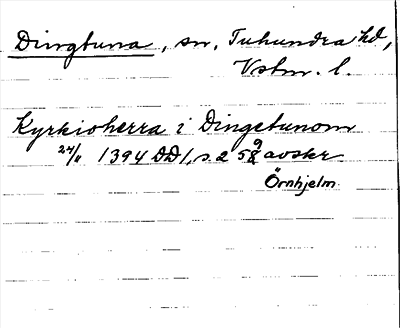 Dingtuna, sn, Tuhundra hd,
Vstm. l.
Kyrkioherra i Dingetunom
24/11 1394 DD 1, s. 2 avskr
Örnhjelm